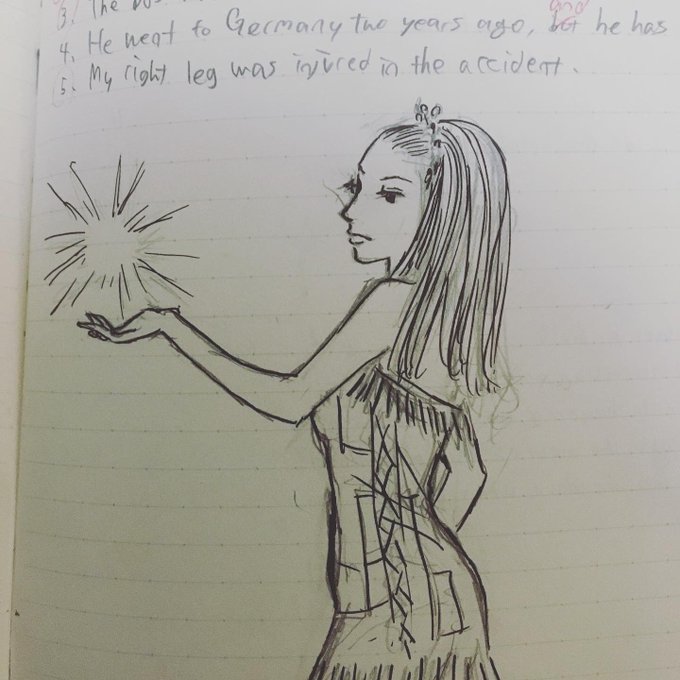 3. The
and
4. He went to Germany two years ago, but he has
5. My right leg was injured in the accident.